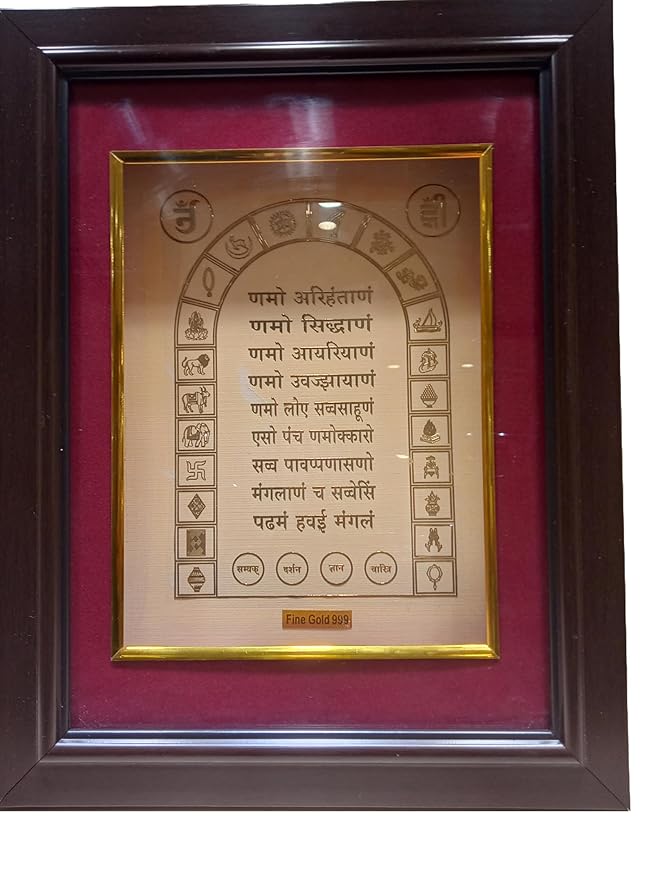 णमो अरिहंताणं
णमो सिद्धाणं
णमो आयरियाणं
णमो उवज्झायाणं
णमो लोए सव्वसाहूणं
एसो पंच णमोक्कारो
सव्व पावप्पणासणो
मंगलाणं च सव्वेसिं
पढमं हवई मंगलं
सम्यक् दर्शन ज्ञान चारित्र
Fine Gold 999